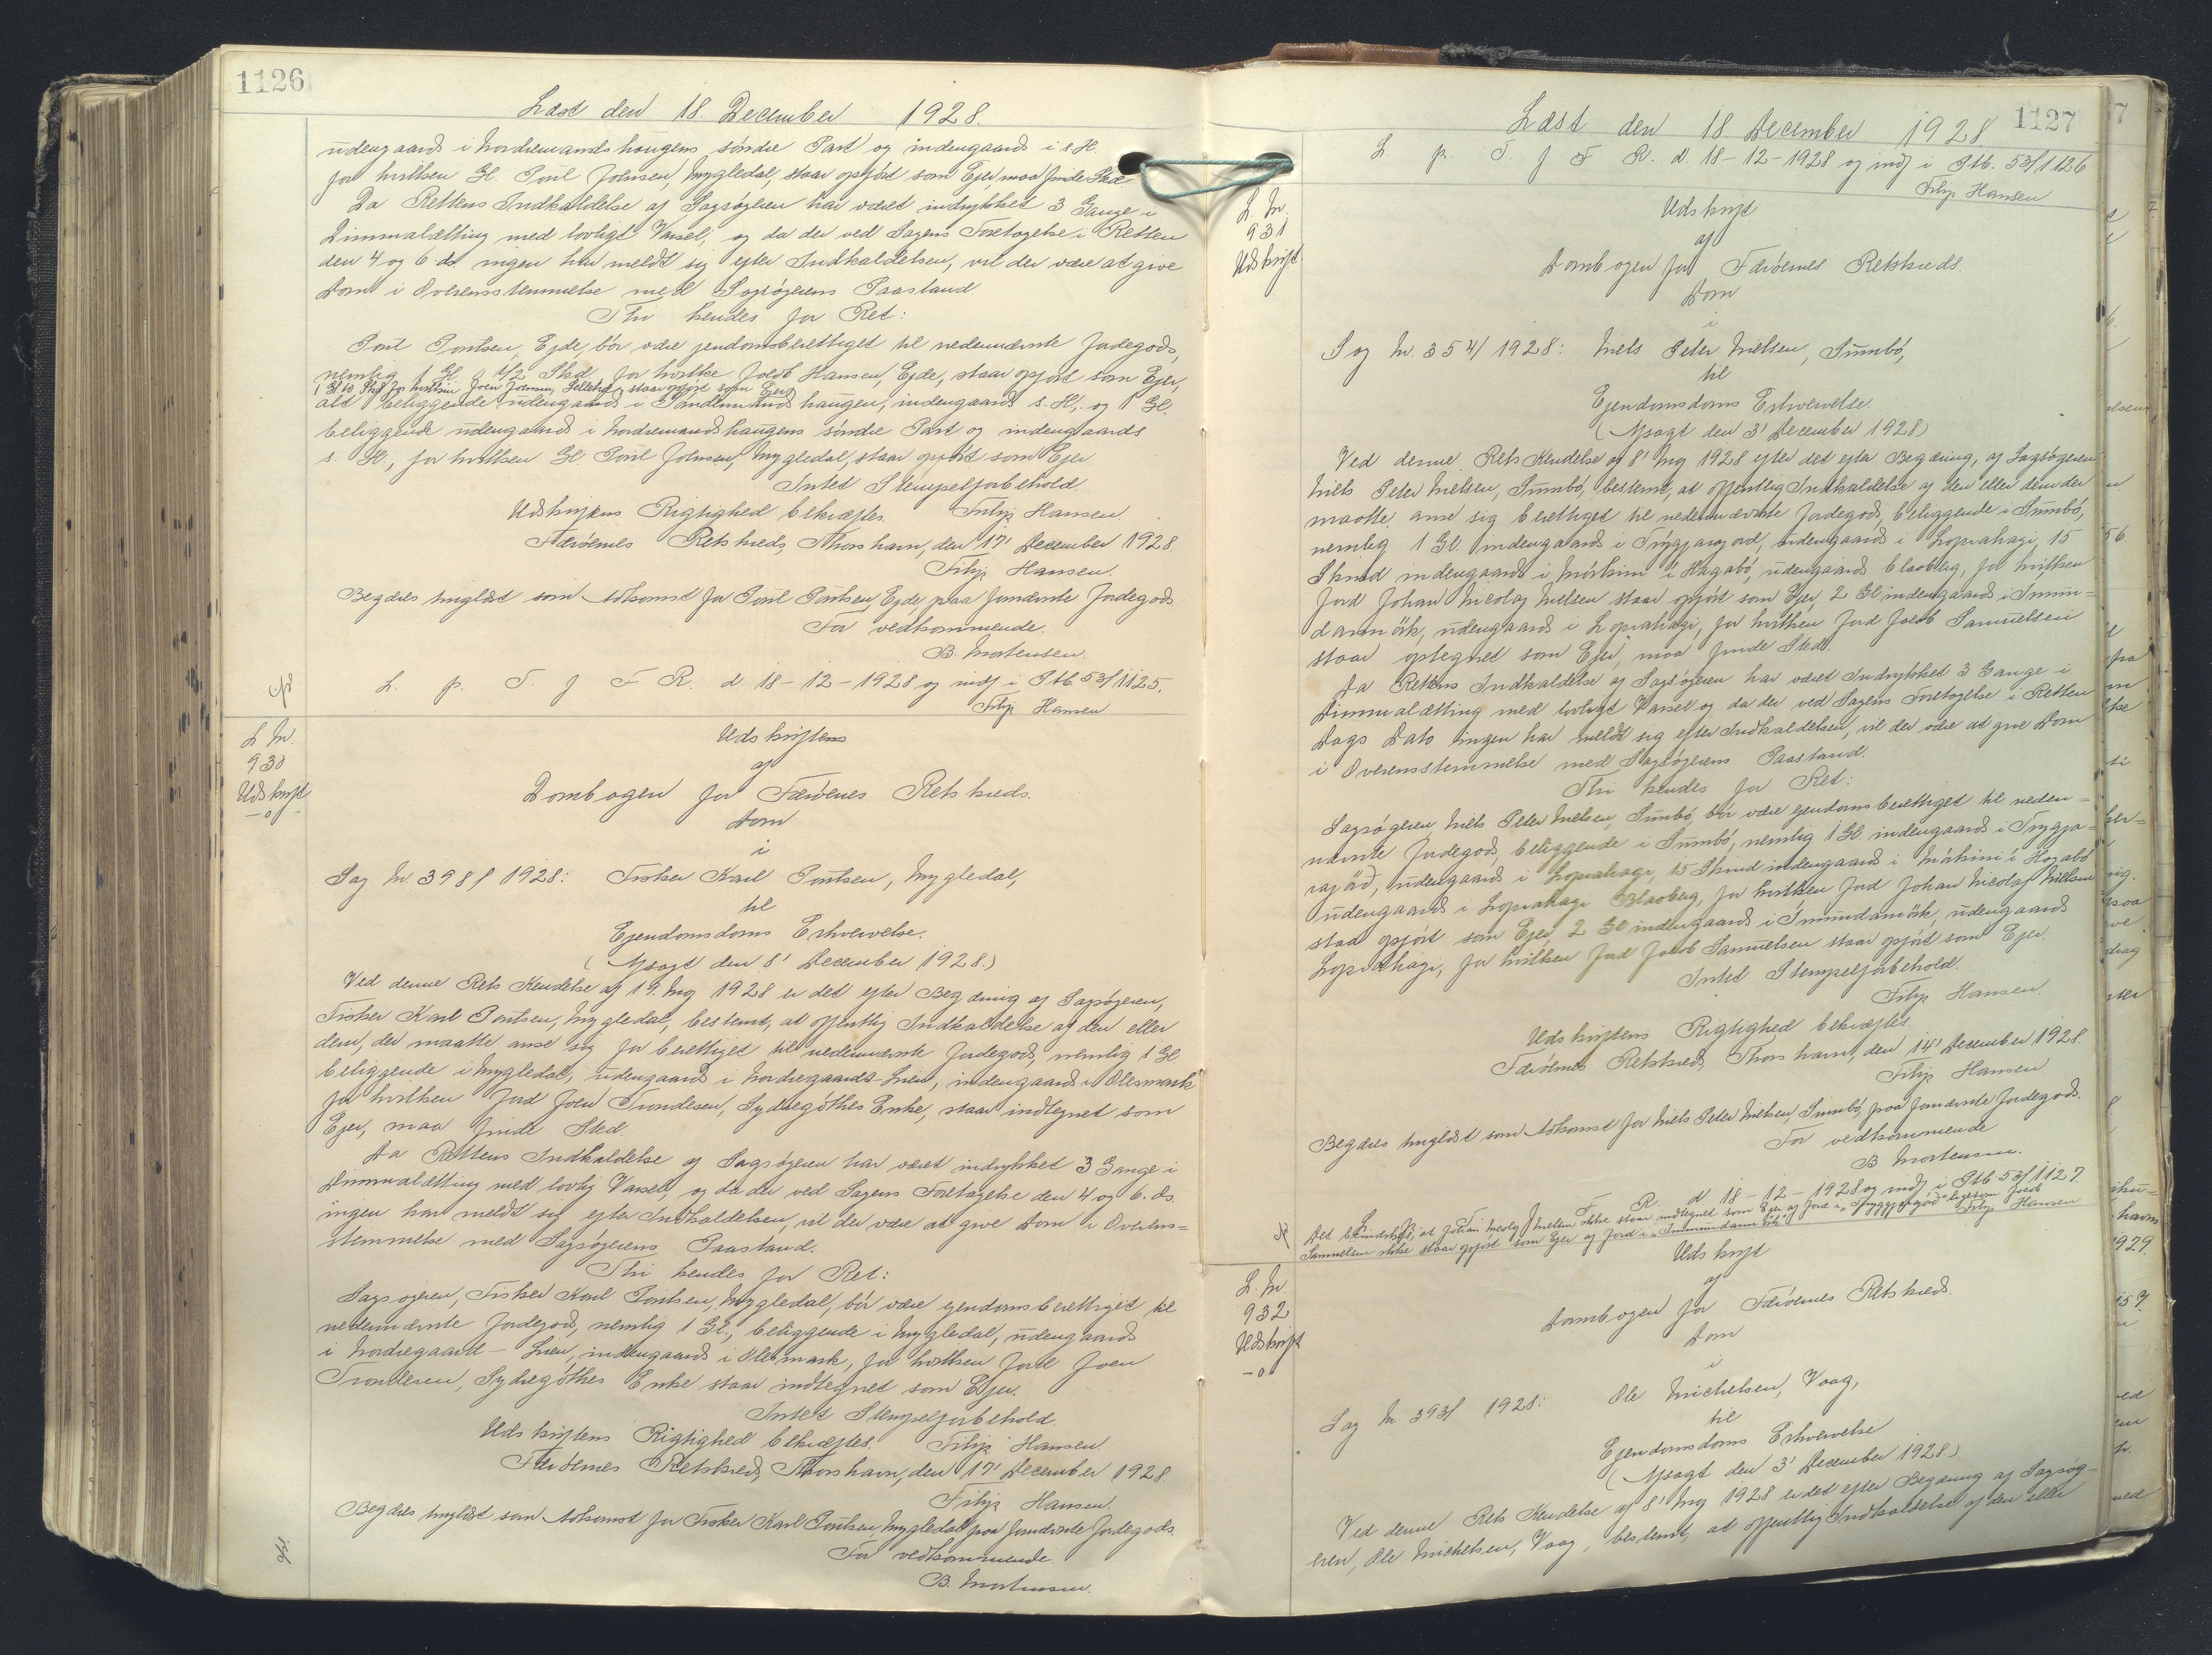 1126
Læst den 18. December 1928.
udengaards i Nordremands haugens søndre Part og indengaards i s. H.
for hvilken Gl. Poul Johnsen, Mygledal, staar opført som Ejer, maa finde Sted
Da Rettens Indkaldelse af Sagsøgeren har været indrykket 3 Gange i
Dimmalætting med lovligt Varsel, og da der ved Sagens Foretagelse i Retten
den 4 og 6 ds. ingen har meldt sig efter Indkaldelsen, vil der være at give
Dom i Overensstemmelse med Sagsøgerens Paastand
Thi kendes for Ret:
Poul Poulsen, Ejde, bør være ejendomsberettiget til nedennævnte Jordegods,
nemlig 1 Gl. Skd. for hvilke Jacob Hansen, Ejde, staar opført som Ejer,
1 Gl. Skd for hvilken Joen Joensen, staar opført som Ejer
alt beliggende udengaards i Søndremands haugen, indengaards s. H., og 1 Gl.
beliggende udengaards i Nordremandshaugens søndre Part og indengaards
s. H., for hvilken Gl. Poul Johnsen, Mygledal, staar opført som Ejer
Intet Stempelforbehold
Udskriftens Rigtighed bekræftes. Filip Hansen.
Færøernes Retskreds, Thorshavn, den 17' December 1928.
Filip Hansen.
Begæres tinglæst som Adkomst for Poul Poulsen, Ejde paa fornævnte Jordegods
For vedkommende.
B. Mortensen.
L. p. T. f F R. d. 18-12-1928 og indf i Ptb. 53/1125.
Filip Hansen
L Nr.
930
Udskrift
-o-
Udskriftens
af
Dombogen for Færøernes Retskreds.
Dom
i
Sag Nr 398/1928: Fisker Karl Poulsen, Mygledal,
til
Ejendomsdoms Erhvervelse.
(Afsagt den 8' December 1928.)
Ved denne Rets Kendelse af 19. Nvg 1928 er det efter Begæring af Sagsøgeren,
Fisker Karl Poulsen, Mygledal, bestemt, at offentlig Indkaldelse af den eller
dem, der maatte anse sig for berettiget til nedennævnte Jordegods, nemlig 1 Gl
beliggende i Mygledal, udengaards i Nordregaards-Lien, indengaards i Olesmark
for hvilken Jord Joen Trondesen, Sydregøthes Enke, staar indtegnet som
Ejer, maa finde Sted.
Da Rettens Indkaldelse af Sagsøgeren har været indrykket 3 Gange i
Dimmalætting med lovlig Varsel, og da der ved Sagens Foretagelse den 4 og 6. ds.
ingen har meldt sig efter Indkaldelsen, vil der være at give Dom i Overens=
stemmelse med Sagsøgerens Paastand.
Thi kendes for Ret:
Sagsøgeren, Fisker Karl Poulsen, Mygledal, bør være ejendomsberettiget til
nedennævnte Jordegods, nemlig 1 Gl., beliggende i Mygledal, udengaards
i Nordregaard - Lien, indengaards i Olesmark, for hvilken Jord Joen
Trondesen, Sydregøthes Enke staar indtegnet som Ejer.
Intet Stempelforbehold.
Udskriftens Rigtighed bekræftes. Filip Hansen.
Færøernes Retskreds, Thorshavn, den 17' December 1928.
Filip Hansen.
Begæres tinglæst som Adkomst for Fisker Karl Poulsen, Mygledal paa fornævnte Jordegods.
For vedkommende
B. Mortensen.
1127
Læst den 18. December 1928
L. p. T. f F R. d. 18-12-1928 og indf i Ptb. 53/1126
Filip Hansen
L. Nr.
931
Udskrift
Udskrift
af
Dombogen for Færøernes Retskreds.
Dom
i
Sag Nr. 354/1928: Niels Peter Nielsen, Sumbø,
til
Ejendomsdoms Erhvervelse.
(Afsagt den 3' December 1928)
Ved denne Rets Kendelse af 8' Nvg 1928 efter det efter Begæring, af Sagsøgeren
Niels Peter Nielsen, Sumbø, bestemt, at offentlig Indkaldelse af den eller dem der
maatte anse sig berettiget til nedennævnte Jordegods, beliggende i Sumbø,
nemlig 1 Gl. indengaards i Tryggjaragard, udengaards i Loprahagi, 15
Skind indengaards i Mørkini i Hagabø, udengaards Blaaberg, for hvilken
Jord Johan Nicolaj Nielsen staar opført som Ejer, 2 Gl indengaards i Imun=
darmørk, udengaards i Lopralhagi, for hvilken Jord Jacob Samuelsen
staar optegnet som Ejer, maa finde Sted.
Da Rettens Indkaldelse af Sagsøgeren har været Indrykket 3 Gange i
Dimmalætting med lovligt Varsel og da der ved Sagens Foretagelse i Retten
Dags Dato ingen har meldt sig efter Indkaldelsen, vil der være at give Dom
i Overensstemmelse med Sagsøgerens Paastand.
Thi kendes for Ret:
Sagsøgeren Niels Peter Nielsen, Sumbø, bør være ejendomsberettiget til neden=
nævnte Jordegods, beliggende i Sumbø, nemlig 1 Gl indengaards i Trygja=
ragård, udengaards i Lopralhagi, 15 Skind indengaards i Mørkini i Hogabø
udengaards i Lopralhagi Blaaberg, for hvilken Jord Johan Nicolaj Nielsen
staar opført som Ejer, 2 Gl indengaards i Imundamørk, udengaards
Lopralhagi, for hvilken Jord Jacob Samuelsen staar opført som Ejer
Intet Stempelforbehold.
Filip Hansen.
Udskriftens Rigtighed bekræftes.
Færøernes Retskreds, Thorshavn, den 14' December 1928.
Filip Hansen
Begæres tinglæst som Adkomst for Niels Peter Nielsen, Sumbø, paa fornævnte Jordegods.
For vedkommende
B Mortensen.
L. p. T. f F. R. d 18-12-1928 og indf i Ptb 53/1127.
Det bemærkes, at Johan Nicolaj Nielsen ikke staar indtegnet som Ejer af Jord i "Tryggjaragørd" ligesom Jacob
Samuelsen ikke staar opført som Ejer af Jord i "Imundarmørk". Filip Hansen
L. Nr.
932
Udskrift
-o
Udskrift
af
Dombogen for Færøernes Retskreds.
Dom
i
Sag Nr 393/1928: Ole Michelsen, Vaag,
til
Ejendomsdoms Erhvervelse
(Afsagt den 3' December 1928)
Ved denne Rets Kendelse af 8' Nvg 1928 er det efter Begæring af Sagsøg=
eren, Ole Michelsen, Vaag, bestemt, at offentlig Indkaldelse af den eller